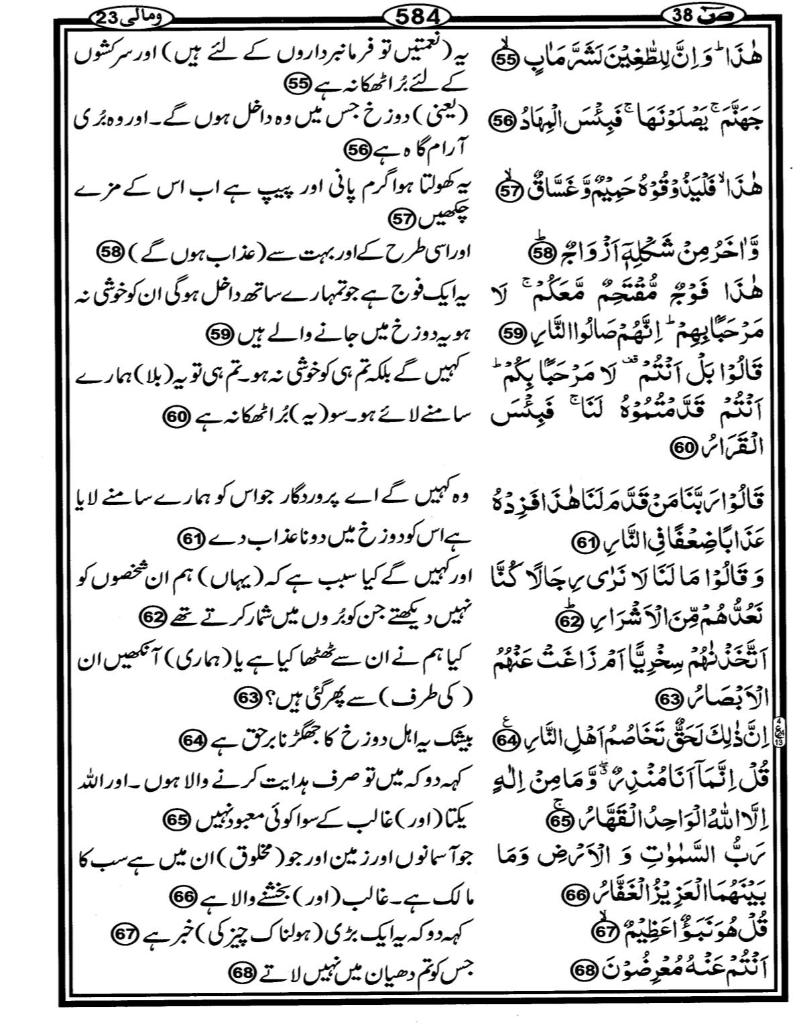 صٓ 38
584
ومالی 23
هٰذَا ؕ وَ اِنَّ لِلطّٰغِیْنَ لَشَرَّ مَاٰبٍ ۙ 55
یہ (نعمتیں تو فرمانبرداروں کے لئے ہیں) اور سرکشوں
کے لئے بُرا ٹھکانہ ہے 55
جَهَنَّمَ ۚ یَصْلَوْنَهَا ۚ فَبِئْسَ الْمِهَادُ 56
(یعنی) دوزخ جس میں وہ داخل ہوں گے۔ اور وہ بُری
آرام گاہ ہے 56
هٰذَا ۙ فَلْیَذُوْقُوْهُ حَمِیْمٌ وَّ غَسَّاقٌ ۙ 57
یہ کھولتا ہوا گرم پانی اور پیپ ہے اب اس کے مزے
چکھیں 57
وَّ اٰخَرُ مِنْ شَكْلِهٖۤ اَزْوَاجٌ ؕ 58
اور اسی طرح کے اور بہت سے (عذاب ہوں گے) 58
هٰذَا فَوْجٌ مُّقْتَحِمٌ مَّعَكُمْ ۚ لَا
مَرْحَبًۢا بِهِمْ ؕ اِنَّهُمْ صَالُوا النَّارِ 59
یہ ایک فوج ہے جو تمہارے ساتھ داخل ہوگی ان کو خوشی نہ
ہو یہ دوزخ میں جانے والے ہیں 59
قَالُوْا بَلْ اَنْتُمْ ۫ لَا مَرْحَبًۢا بِكُمْ ؕ
اَنْتُمْ قَدَّمْتُمُوْهُ لَنَا ۚ فَبِئْسَ
الْقَرَارُ 60
کہیں گے بلکہ تم ہی کو خوشی نہ ہو۔ تم ہی تو یہ (بلا) ہمارے
سامنے لائے ہو۔ سو (یہ) بُرا ٹھکانہ ہے 60
قَالُوْا رَبَّنَا مَنْ قَدَّمَ لَنَا هٰذَا فَزِدْهُ
عَذَابًا ضِعْفًا فِی النَّارِ 61
وہ کہیں گے اے پروردگار جو اس کو ہمارے سامنے لایا
ہے اس کو دوزخ میں دونا عذاب دے 61
وَ قَالُوْا مَا لَنَا لَا نَرٰی رِجَالًا كُنَّا
نَعُدُّهُمْ مِّنَ الْاَشْرَارِ ؕ 62
اور کہیں گے کیا سبب ہے کہ (یہاں) ہم ان شخصوں کو
نہیں دیکھتے جن کو بُروں میں شمار کرتے تھے 62
اَتَّخَذْنٰهُمْ سِخْرِیًّا اَمْ زَاغَتْ عَنْهُمُ
الْاَبْصَارُ 63
کیا ہم نے ان سے ٹھٹھا کیا ہے یا (ہماری) آنکھیں ان
(کی طرف) سے پھر گئی ہیں؟ 63
اِنَّ ذٰلِكَ لَحَقٌّ تَخَاصُمُ اَهْلِ النَّارِ 64 ع
بیشک یہ اہل دوزخ کا جھگڑنا برحق ہے 64
قُلْ اِنَّمَاۤ اَنَا مُنْذِرٌ ۖ وَّ مَا مِنْ اِلٰهٍ
اِلَّا اللّٰهُ الْوَاحِدُ الْقَهَّارُ ۚ 65
کہہ دو کہ میں تو صرف ہدایت کرنے والا ہوں۔ اور اللہ
یکتا (اور) غالب کے سوا کوئی معبود نہیں 65
رَبُّ السَّمٰوٰتِ وَ الْاَرْضِ وَمَا
بَیْنَهُمَا الْعَزِیْزُ الْغَفَّارُ 66
جو آسمانوں اور زمین اور جو (مخلوق) ان میں ہے سب کا
مالک ہے۔ غالب (اور) بخشنے والا ہے 66
قُلْ هُوَ نَبَؤٌا عَظِیْمٌ ۙ 67
کہہ دو کہ یہ ایک بڑی (ہولناک چیز کی) خبر ہے 67
اَنْتُمْ عَنْهُ مُعْرِضُوْنَ 68
جس کو تم دھیان میں نہیں لاتے 68